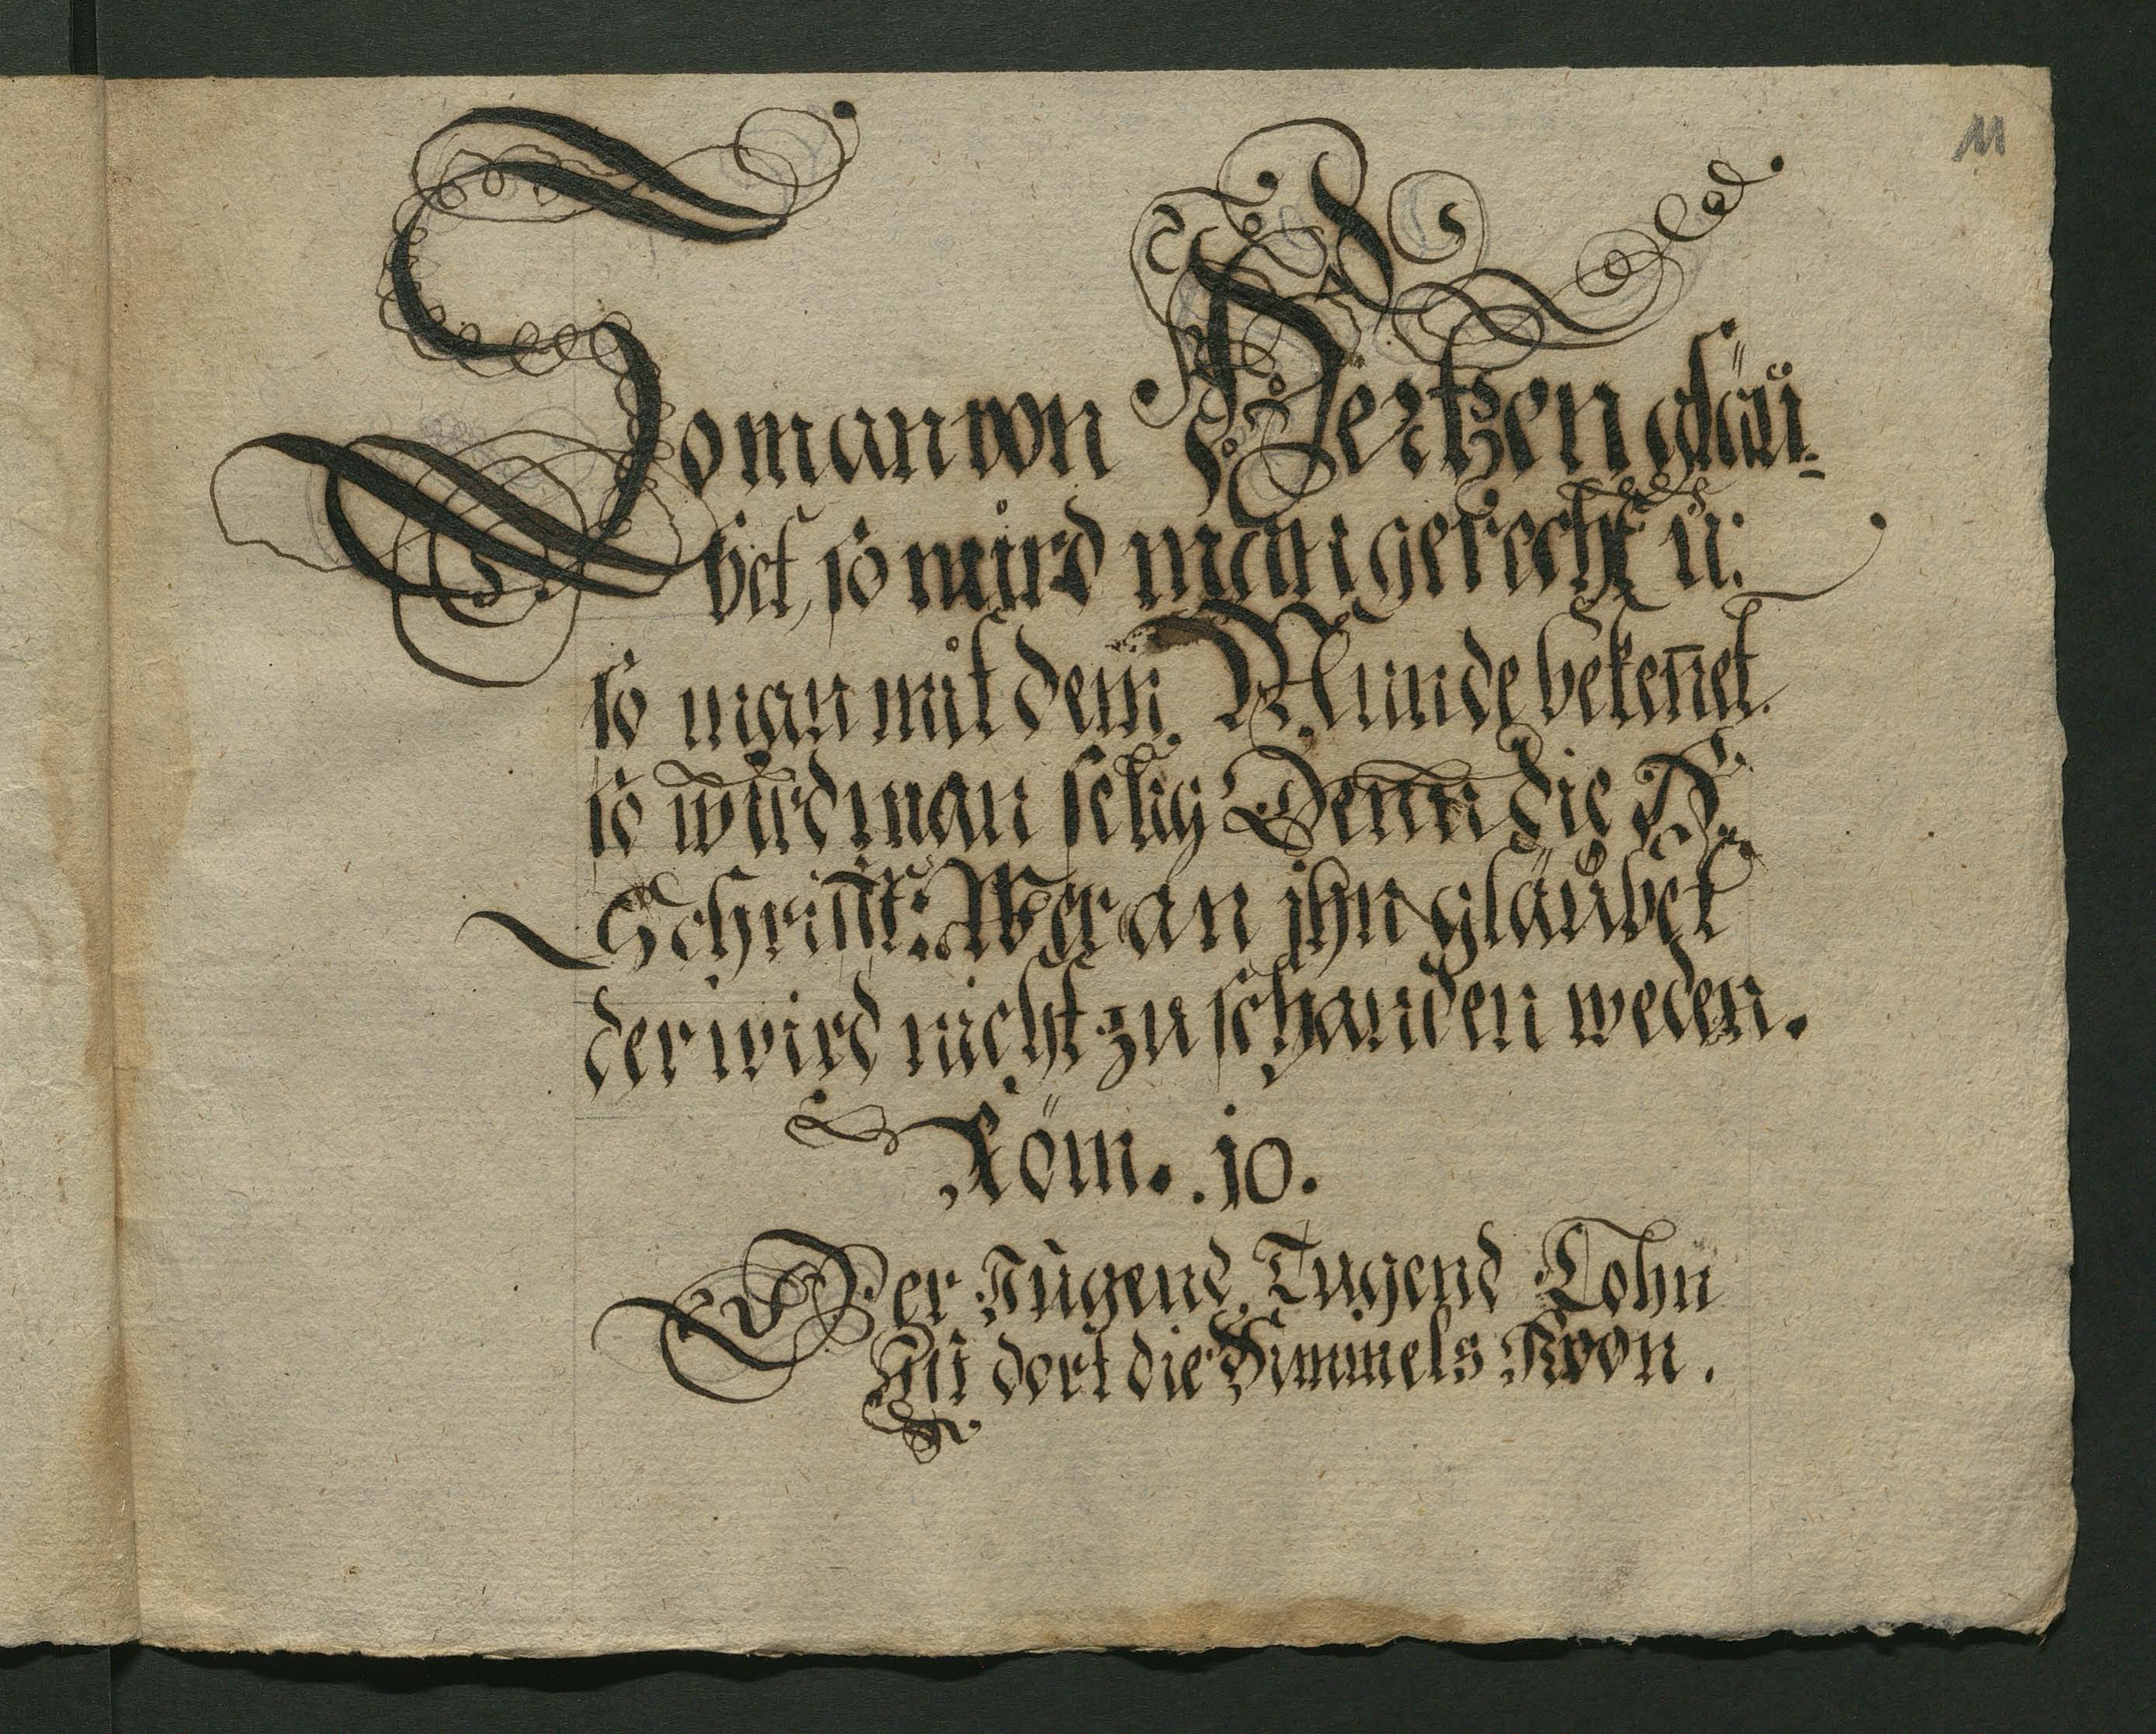 11
So man von Hertzen gläu-
bet, so wird man gerecht u:
so man mit dem Munde bekennet.
so wird man selig Denn die H.
Schrifft: Wer an ihn gläubet
der wird nicht zu schanden weden.
Röm. 10.
Der Jugend Tugend Lohn
Ist dort die Himmels Kron.